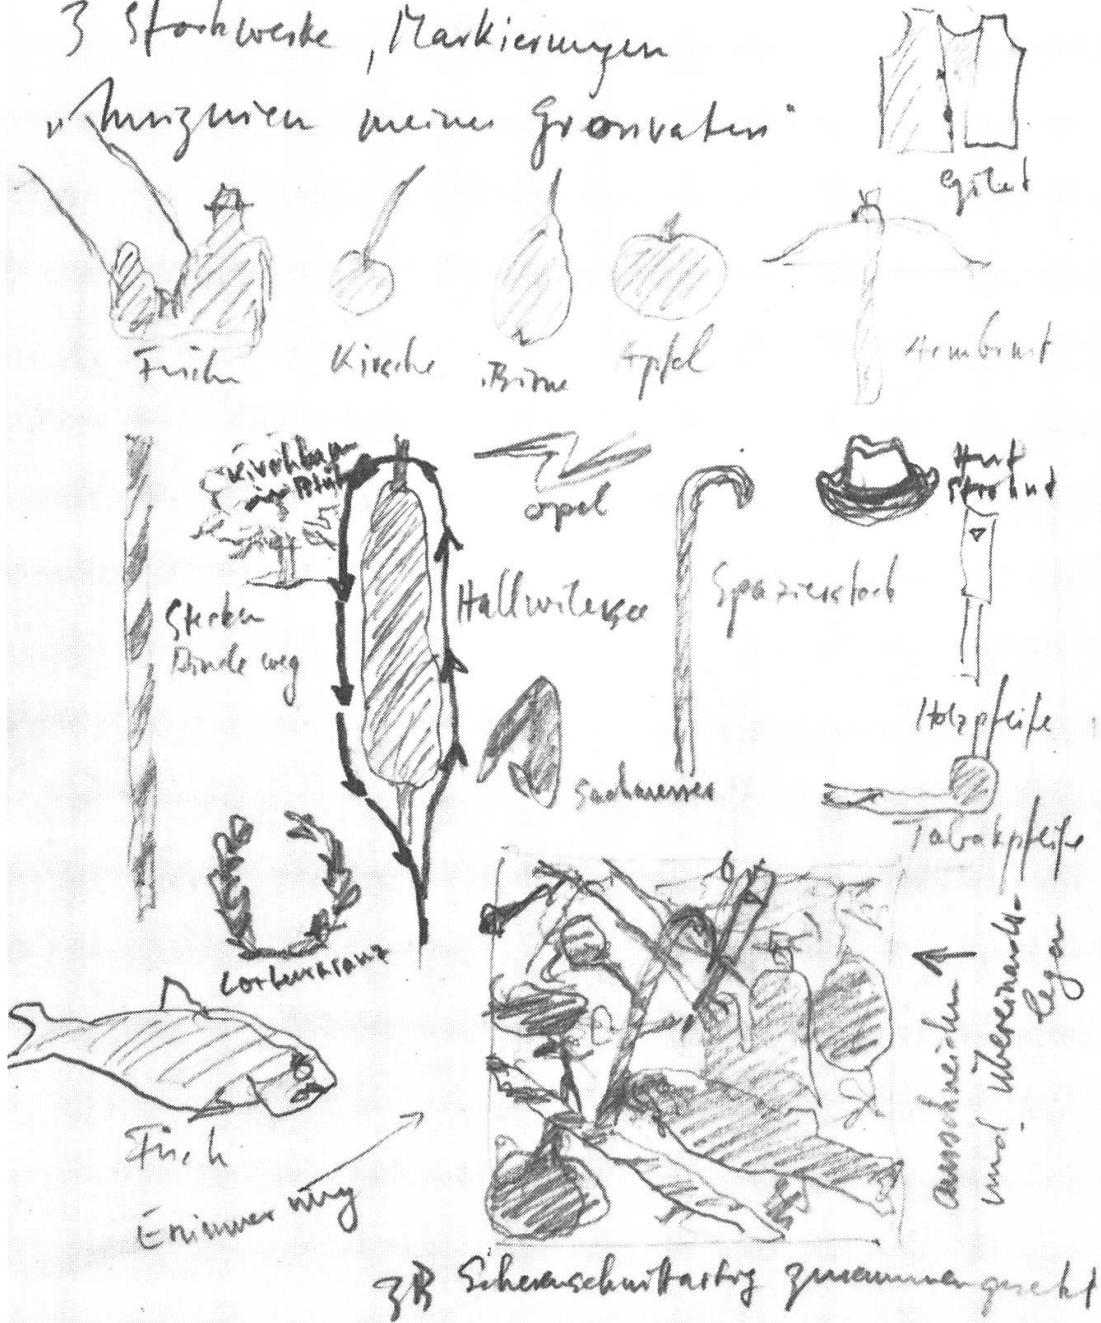 3 Stockwerke, Markierungen
meines Grossvaters"
Gilet
Kirsche
Birne
Apfel
Armbrust
Kirschbaum
in Blüte
Opel
Hut
Strohhut
Stecken
Binde weg
Hallwilersee
Spazierstock
Holzpfeife
Sackmesser
Tabakpfeife
Lorbeerkranz
ausschneiden
und übereinander-
legen
Fisch
Erinnerung
zB Scherenschnittartig zusammengesetzt